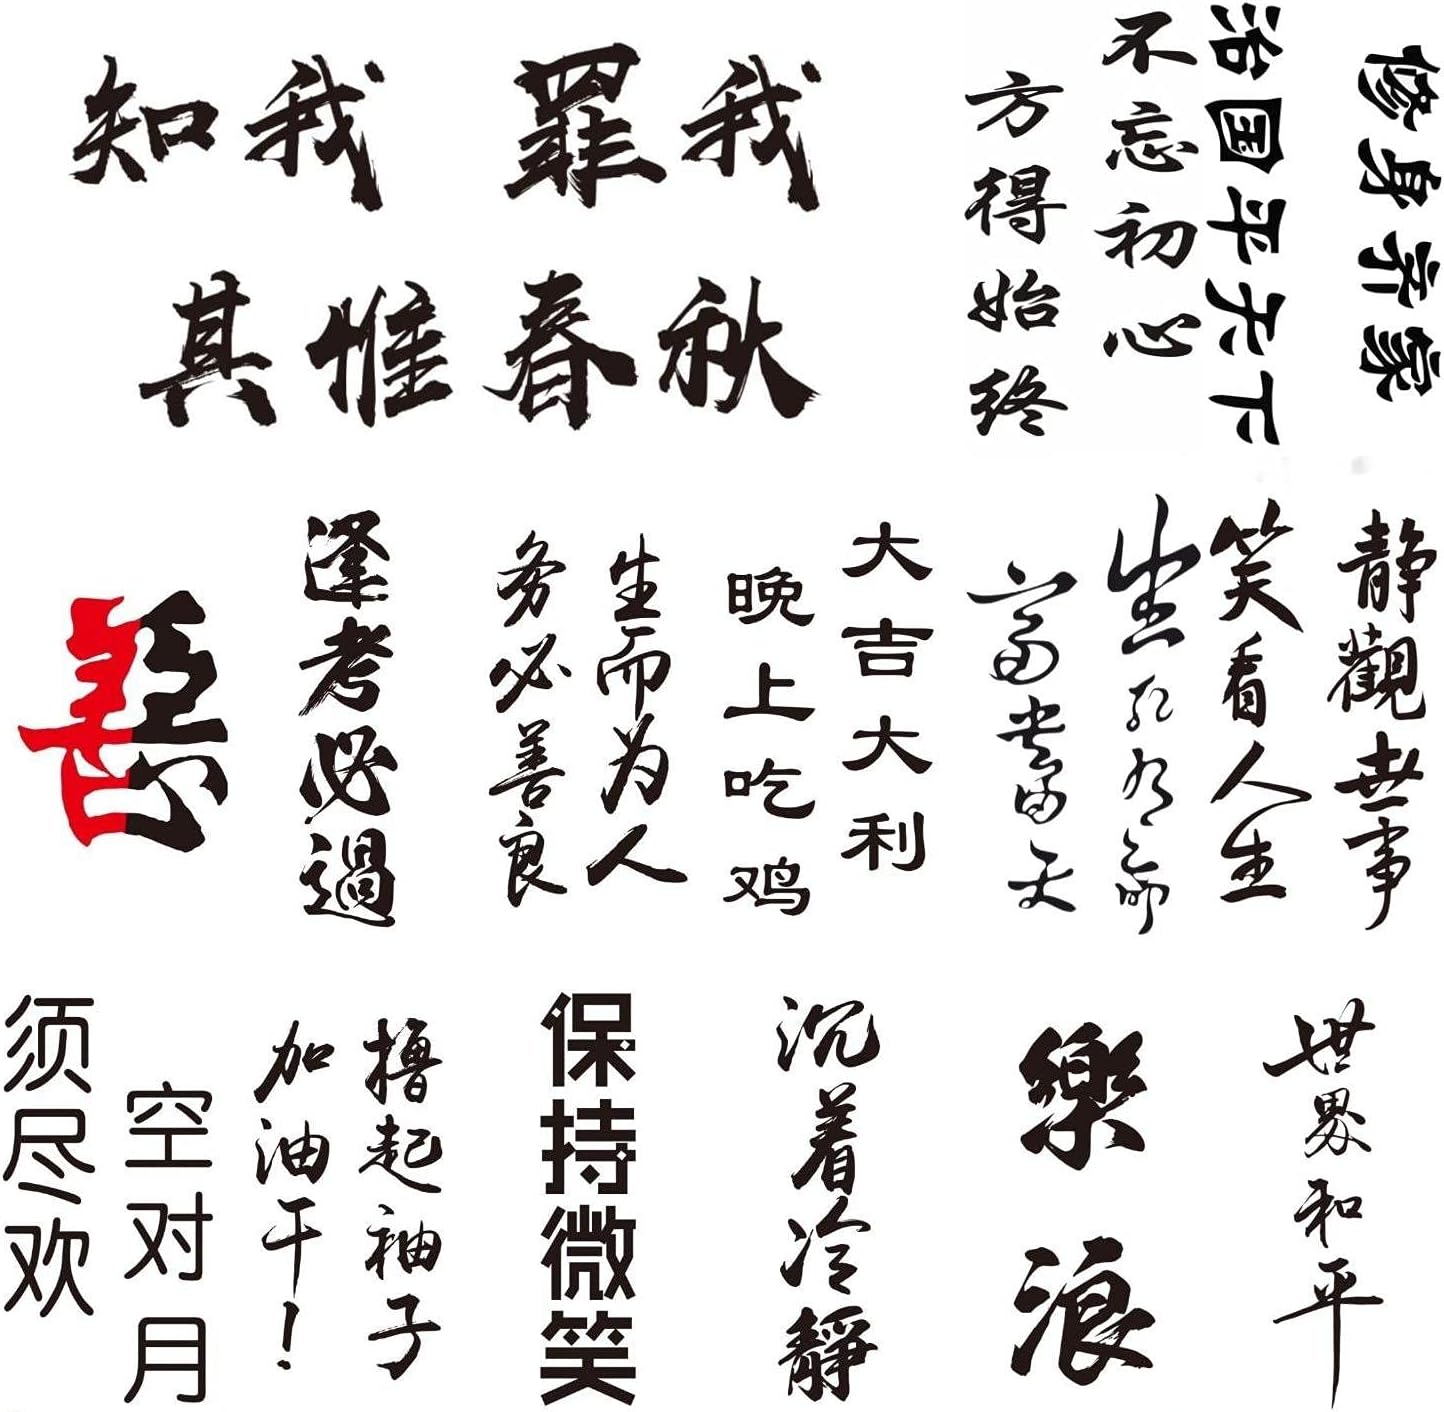 知我 罪我
其惟春秋
不忘初心
方得始终
修身齐家
治国平天下
善惡
逢考必過
生而为人
务必善良
大吉大利
晚上吃鸡
生死有命
富贵在天
静觀世事
笑看人生
空对月
须尽欢
撸起袖子
加油干！
保持微笑
沉着冷靜
樂浪
世界和平